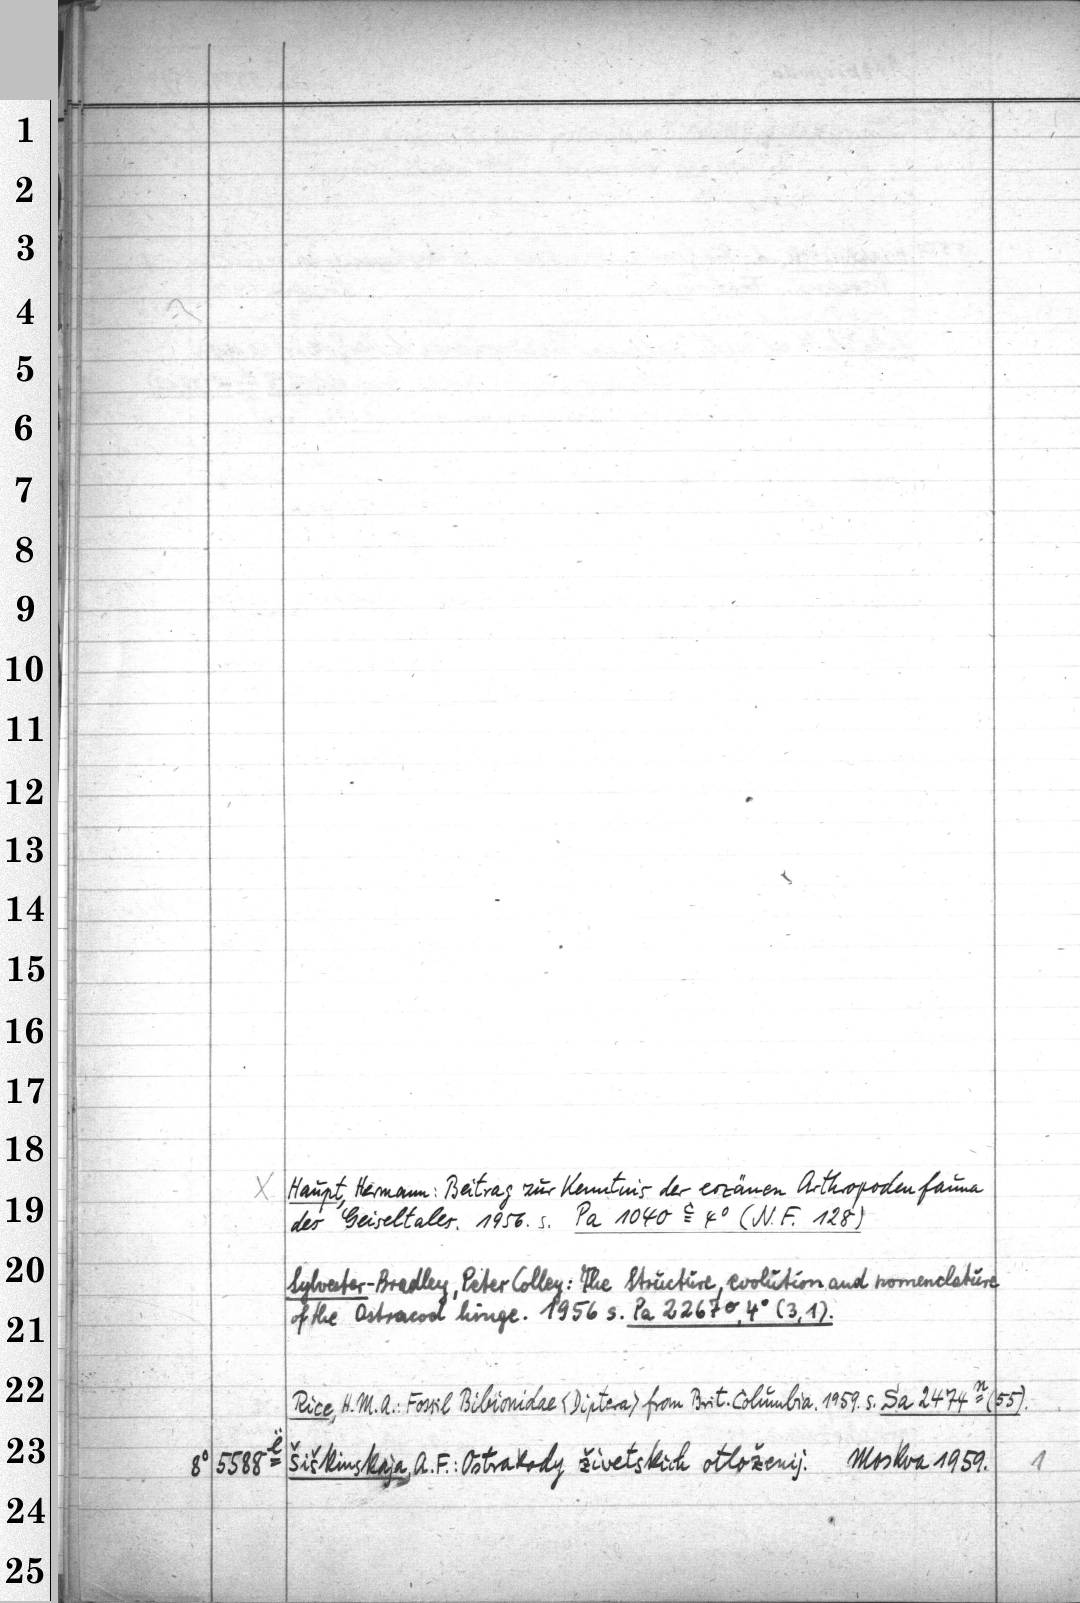 1
2
3
4
5
6
7
8
9
10
11
12
13
14
15
16
17
18
19
20
21
22
23
24
25
X Haupt, Hermann: Beitrag zur Kenntnis der eozänen Arthropodenfauna
des Geiseltales. 1956. s. Pa 1040 c 4° (N.F. 128)
Sylvester-Bradley, Peter Colley: The Structure, evolution and nomenclature
of the Ostracod hinge. 1956 s. Pa 2267 4° (3,1).
Rice, H.M.A.: Fossil Bibionidae <Diptera> from Brit. Columbia. 1959. s. Sa 2474 n (55).
8° 5588 ë Šiškinskaja, A.F.: Ostrakody živetskich otloženij. Moskva 1959. 1